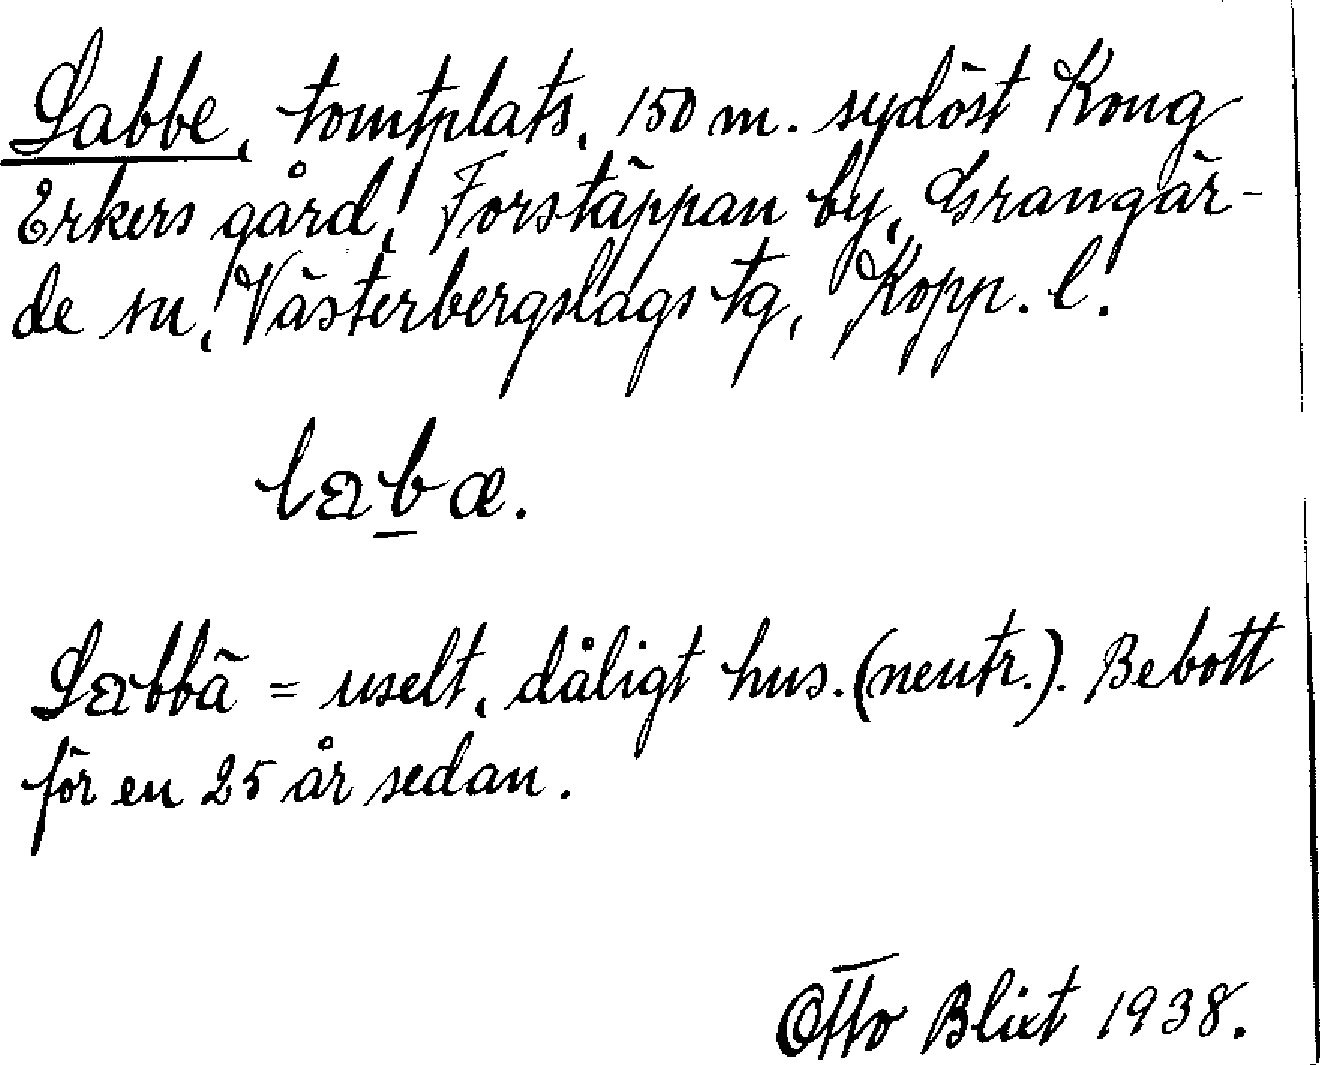 Labbe, tomtplats, 150 m. sydöst Kong
Erkers gård, Forstäppan by, Grangär-
de sn, Västerbergslags tg, Kopp. l.
laba.
Labbä = uselt, dåligt hus. (neutr.). Bebott
för en 25 år sedan.
Otto Blixt 1938.